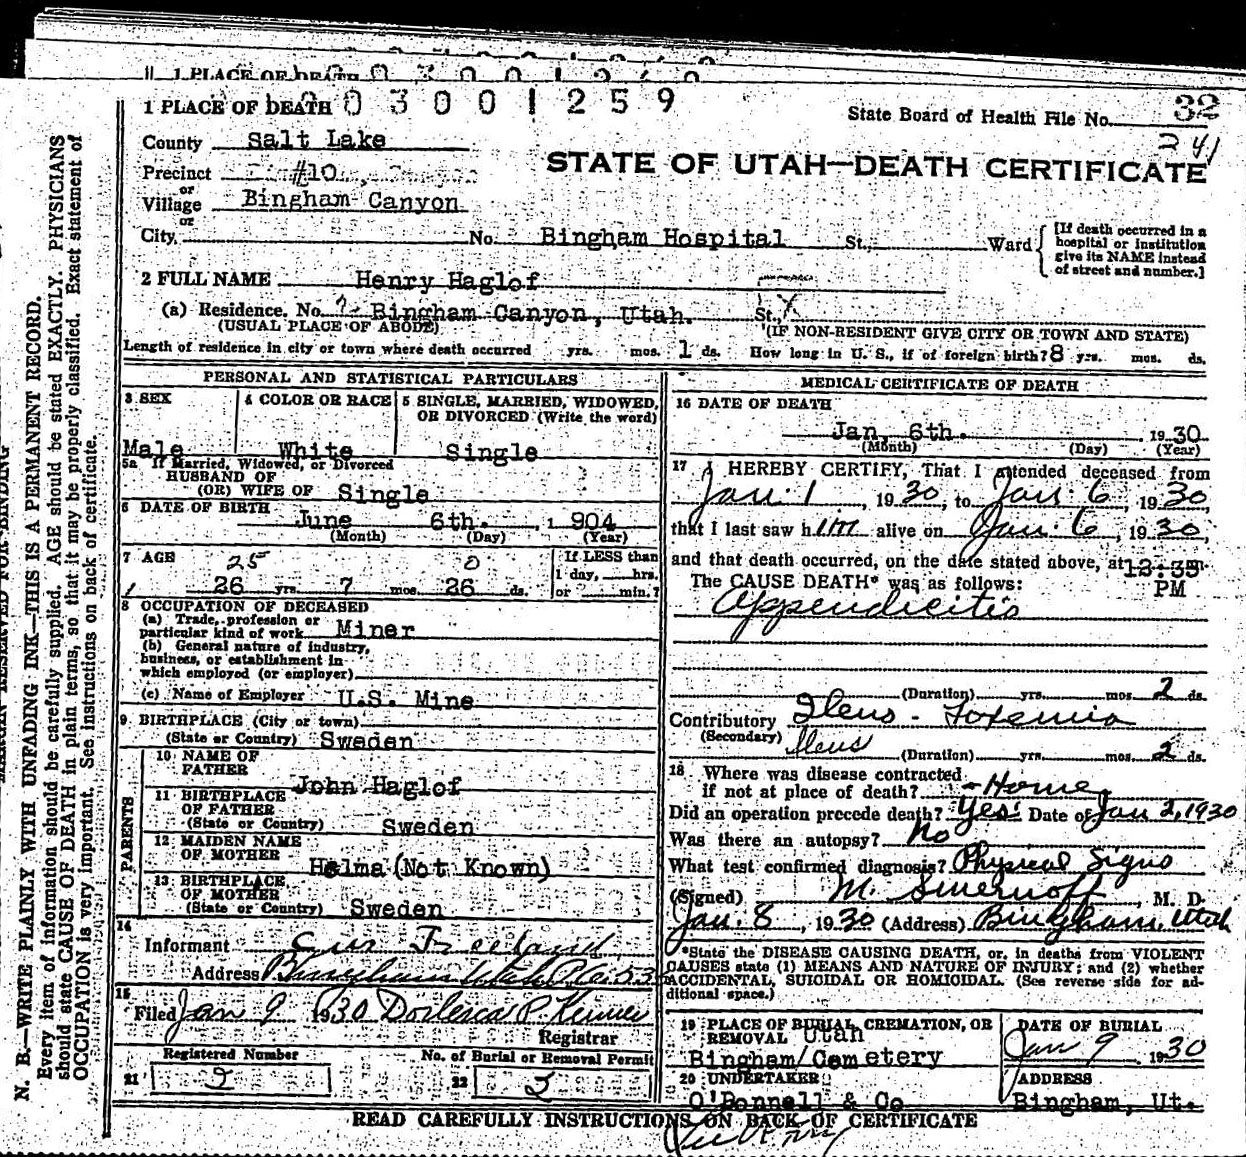 1 PLACE OF DEATH 0 0 3 0 0 1 2 5 9
State Board of Health File No. 32
241
County Salt Lake
STATE OF UTAH—DEATH CERTIFICATE
Precinct #10
or
Village Bingham Canyon
or
City No. Bingham Hospital St., Ward
[If death occurred in a
hospital or institution
give its NAME instead
of street and number.]
2 FULL NAME Henry Haglof
(a) Residence. No. ? Bingham Canyon, Utah. St., X
(USUAL PLACE OF ABODE) (IF NON-RESIDENT GIVE CITY OR TOWN AND STATE)
Length of residence in city or town where death occurred yrs. mos. 1 ds. How long in U. S., if of foreign birth? 8 yrs. mos. ds.
PERSONAL AND STATISTICAL PARTICULARS
3 SEX
Male
4 COLOR OR RACE
White
5 SINGLE, MARRIED, WIDOWED,
OR DIVORCED (Write the word)
Single
5a If Married, Widowed, or Divorced
HUSBAND OF
(OR) WIFE OF Single
6 DATE OF BIRTH
June 6th. 1 904
(Month) (Day) (Year)
7 AGE 25 0
26 yrs. 7 mos. 26 ds.
If LESS than
1 day, hrs.
or min.?
8 OCCUPATION OF DECEASED
(a) Trade, profession or
particular kind of work Miner
(b) General nature of industry,
business, or establishment in
which employed (or employer)
(c) Name of Employer U.S. Mine
9 BIRTHPLACE (City or town)
(State or Country) Sweden
PARENTS
10 NAME OF
FATHER
John Haglof
11 BIRTHPLACE
OF FATHER
(State or Country) Sweden
12 MAIDEN NAME
OF MOTHER
Helma (Not Known)
13 BIRTHPLACE
OF MOTHER
(State or Country) Sweden
14
Informant
Address Bingham Utah
15
Filed Jan 9 1930
Registrar
Registered Number
21 2
No. of Burial or Removal Permit
22 2
MEDICAL CERTIFICATE OF DEATH
16 DATE OF DEATH
Jan. 6th. 1930
(Month) (Day) (Year)
17 I HEREBY CERTIFY, That I attended deceased from
Jan. 1, 1930, to Jan. 6, 1930,
that I last saw him alive on Jan. 6, 1930,
and that death occurred, on the date stated above, at 12:35
The CAUSE DEATH* was as follows: PM
Appendicitis
(Duration) yrs. mos. 2 ds.
Contributory Ileus - Toxemia
(Secondary) Ileus (Duration) yrs. mos. 2 ds.
18 Where was disease contracted
If not at place of death? - Home
Did an operation precede death? Yes: Date of Jan 2, 1930
Was there an autopsy? No
What test confirmed diagnosis? Physical Signs
(Signed) M. Smernoff, M. D.
Jan. 8, 1930 (Address) Bingham, Utah
*State the DISEASE CAUSING DEATH, or, in deaths from VIOLENT
CAUSES state (1) MEANS AND NATURE OF INJURY; and (2) whether
ACCIDENTAL, SUICIDAL OR HOMICIDAL. (See reverse side for ad-
ditional space.)
19 PLACE OF BURIAL, CREMATION, OR
REMOVAL Utah
Bingham/Cemetery
DATE OF BURIAL
Jan 9 1930
20 UNDERTAKER
O'Donnell & Co
ADDRESS
Bingham, Ut.
READ CAREFULLY INSTRUCTIONS ON BACK OF CERTIFICATE
N. B.—WRITE PLAINLY WITH UNFADING INK—THIS IS A PERMANENT RECORD.
Every item of information should be carefully supplied. AGE should be stated EXACTLY. PHYSICIANS
should state CAUSE OF DEATH in plain terms, so that it may be properly classified. Exact statement of
OCCUPATION is very important. See instructions on back of certificate.